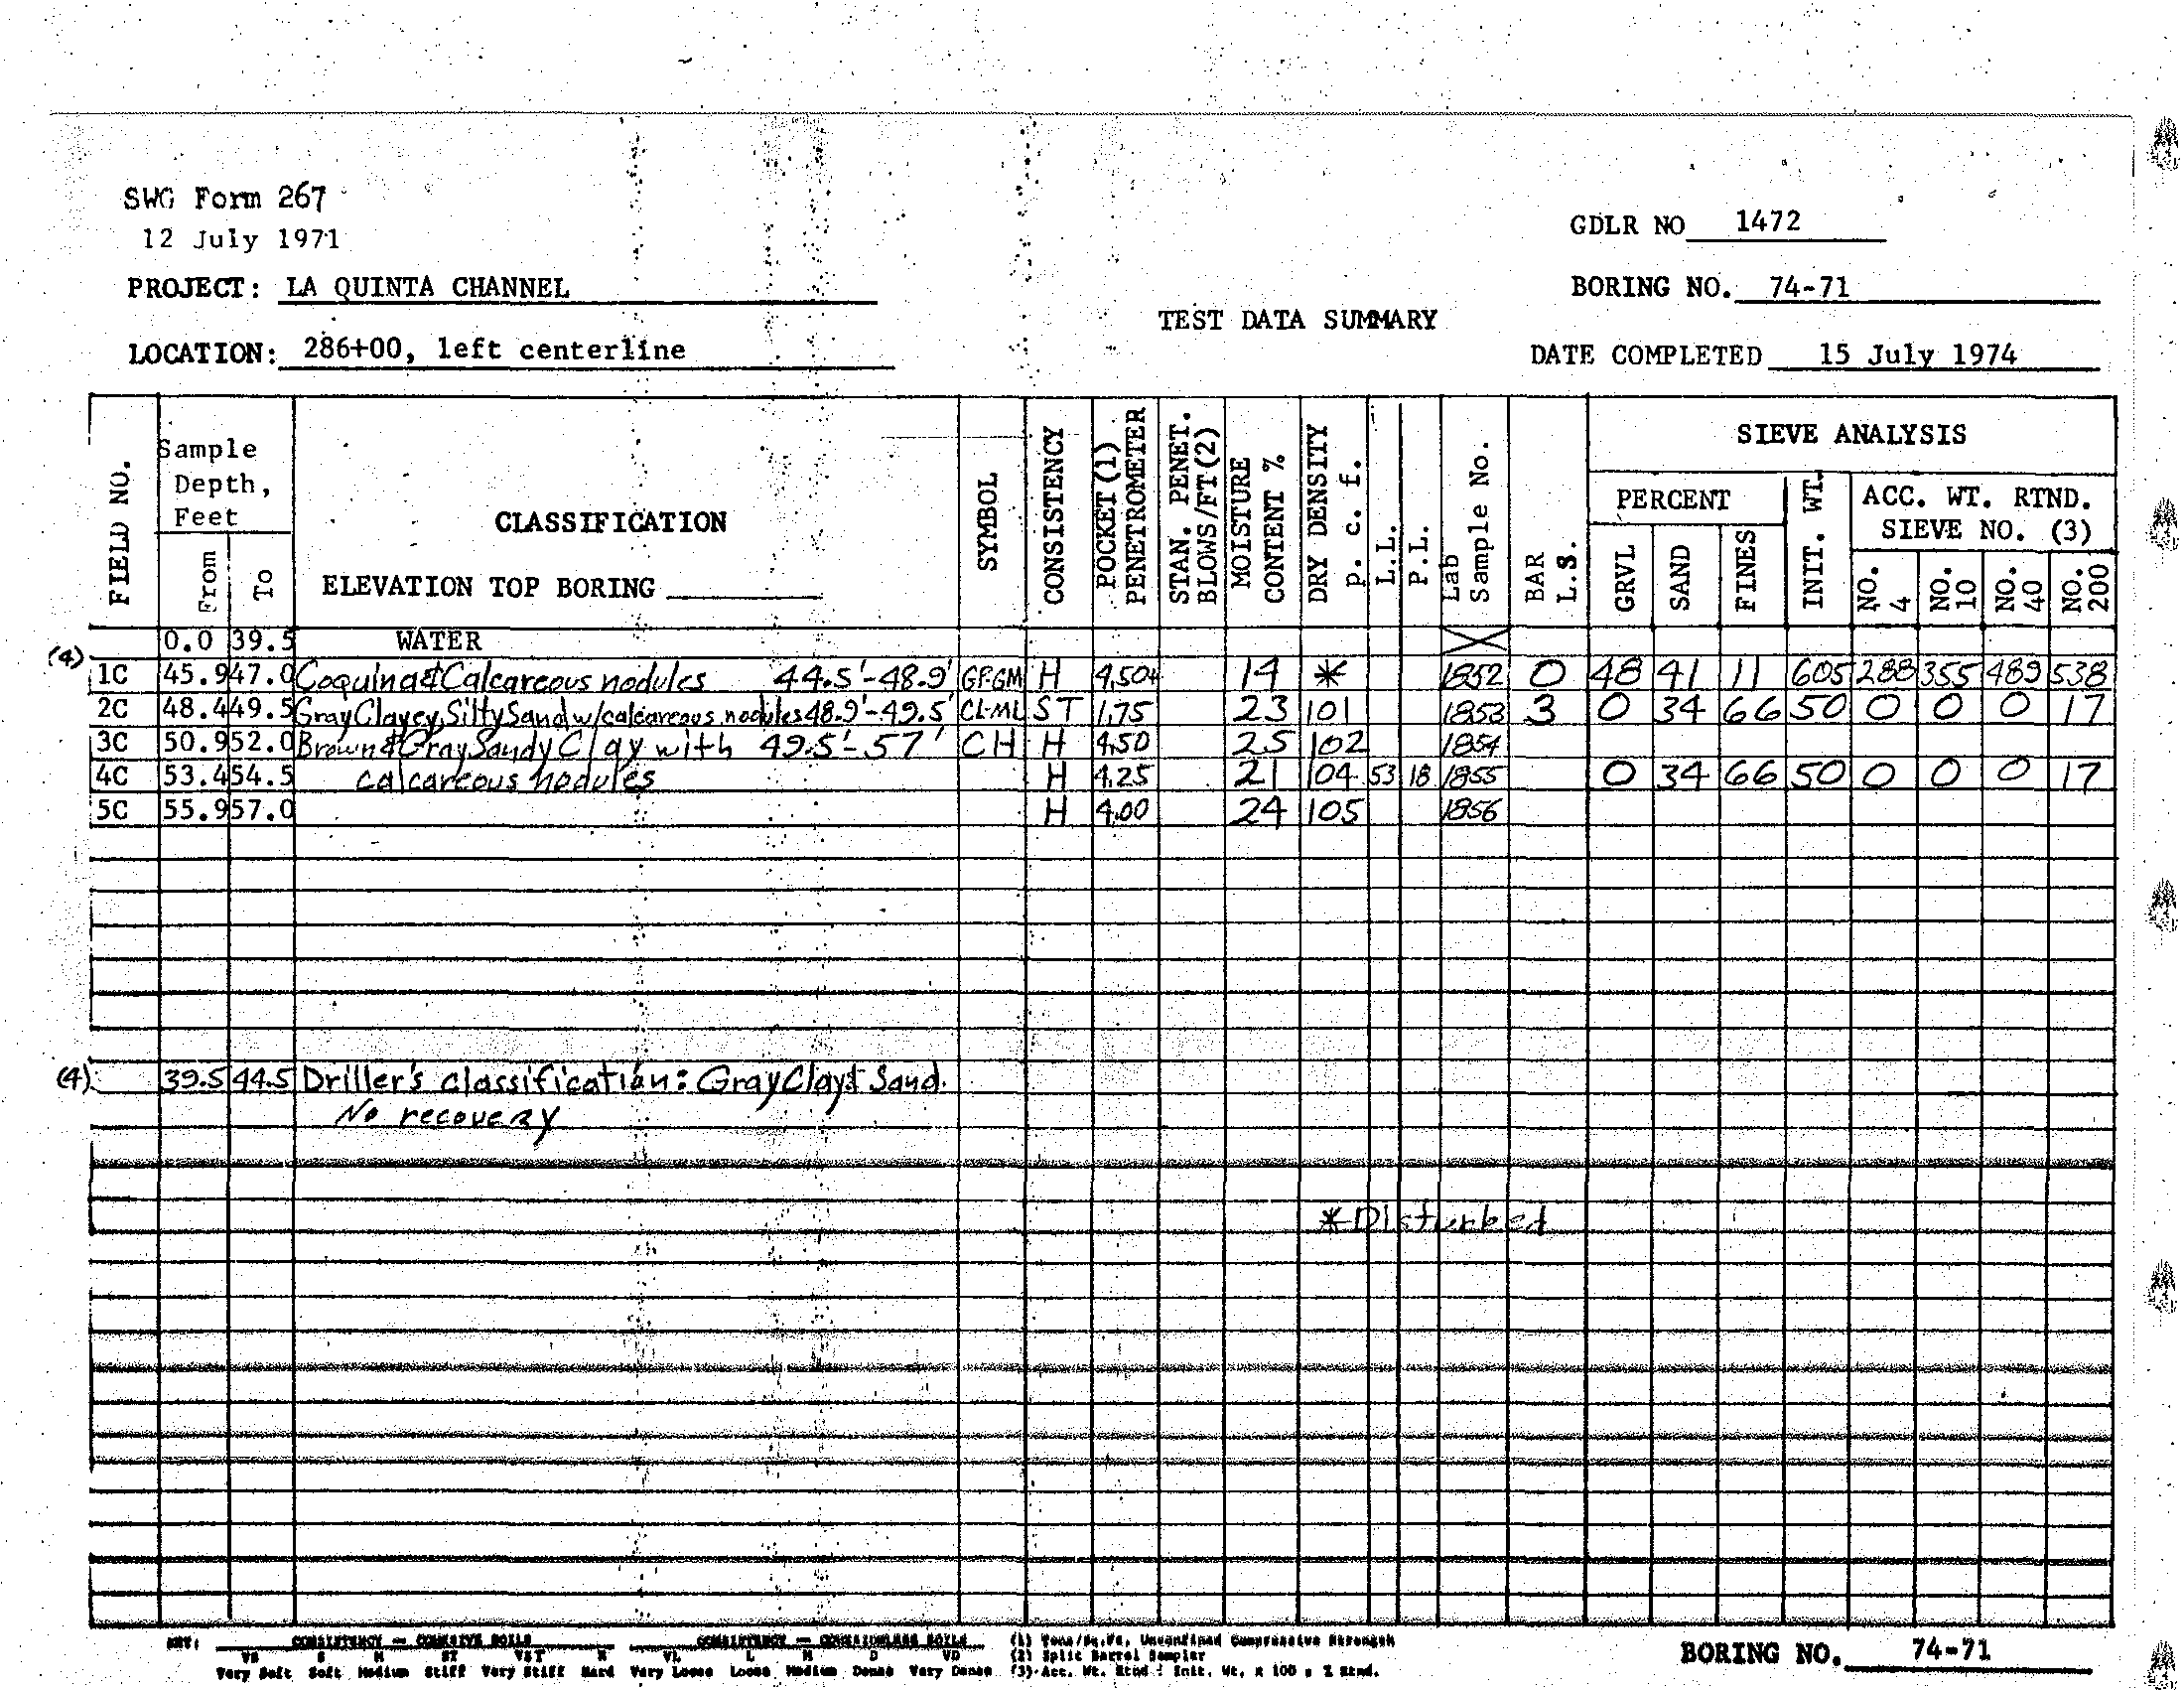 SWG Form 267
12 July 1971
GDLR NO 1472
PROJECT: LA QUINTA CHANNEL
BORING NO. 74-71
TEST DATA SUMMARY
LOCATION: 286+00, left centerline
DATE COMPLETED 15 July 1974
FIELD NO.
Sample Depth, Feet
From
To
CLASSIFICATION
ELEVATION TOP BORING
SYMBOL
CONSISTENCY
POCKET (1) PENETROMETER
STAN. PENET. BLOWS/FT(2)
MOISTURE CONTENT %
DRY DENSITY p. c. f.
L.L.
P.L.
Lab Sample No.
BAR L.S.
SIEVE ANALYSIS
PERCENT
GRVL
SAND
FINES
INIT. WT.
ACC. WT. RTND. SIEVE NO. (3)
NO. 4
NO. 10
NO. 40
NO. 200
0.0 39.5 WATER
(4)
1C 45.9 47.0 Coquina & Calcareous nodules 44.5'-48.9' GP-GM H 4.50+ 14 * 1852 0 48 41 11 605 288 355 489 538
2C 48.4 49.5 Gray Clayey, Silty Sand w/calcareous nodules 48.9'-49.5' CL-ML ST 1.75 23 101 1853 3 0 34 66 50 0 0 0 17
3C 50.9 52.0 Brown & Gray Sandy Clay with 49.5'-57' CH H 4.50 25 102 1854
4C 53.4 54.5 calcareous nodules H 4.25 21 104 53 18 1855 0 34 66 50 0 0 0 17
5C 55.9 57.0 H 4.00 24 105 1856
(4) 39.5 44.5 Driller's classification: Gray Clay & Sand.
No recovery
*Disturbed
KEY: CONSISTENCY — COHESIVE SOILS CONSISTENCY — COHESIONLESS SOILS (1) Tons/Sq.Ft. Unconfined Compressive Strength
VS S M ST VST H VL L M D VD (2) Split Barrel Sampler
Very Soft Soft Medium Stiff Very Stiff Hard Very Loose Loose Medium Dense Very Dense (3) Acc. Wt. Rtnd ÷ Init. Wt. x 100 = % Rtnd.
BORING NO. 74-71